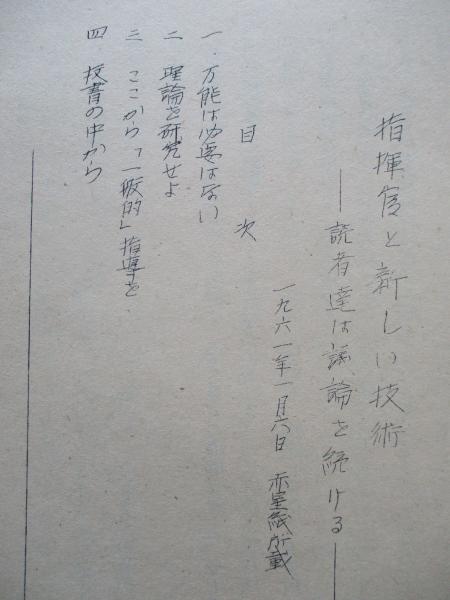 指揮官と新しい技術
――読者達は議論を続ける――
一九六一年一月六日 赤星紙所載
目次
一.万能は必要はない
二 理論を研究せよ
三 ここから「一般的」指導を
四 投書の中から